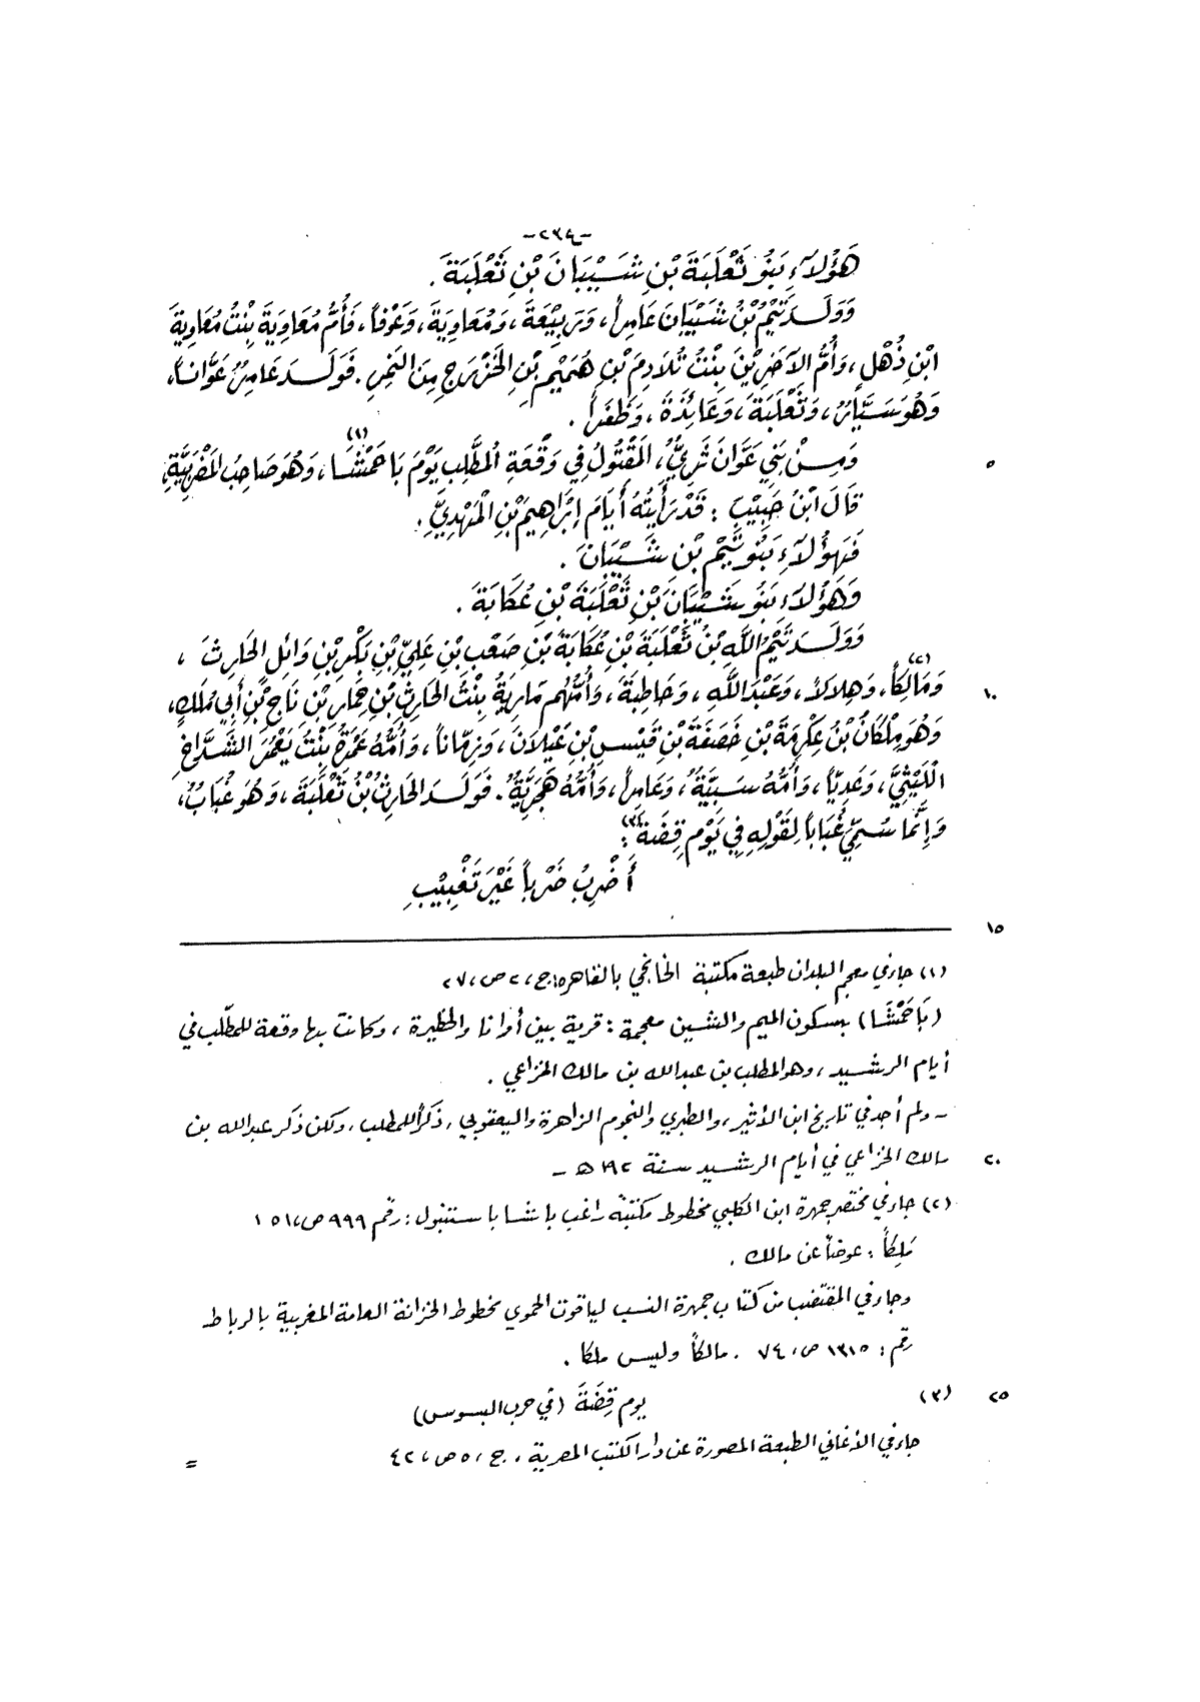 -٢٣٩-
هَؤُلَاءِ بَنُو ثَعْلَبَةَ بْنِ شَيْبَانَ بْنِ ثَعْلَبَةَ .
وَوَلَدَ تَيْمُ بْنُ شَيْبَانَ عَامِراً، وَرَبِيْعَةَ، وَمُعَاوِيَةَ، وَعَوْفاً، وَأُمُّ مُعَاوِيَةَ بِنْتُ مُعَاوِيَةَ
ابْنِ ذُهْلٍ، وَأُمُّ الآخَرِيْنَ بِنْتُ تُلَادِمَ بْنِ هُمَيْمِ بْنِ الخَزْرَجِ مِنَ النَّمِرِ. فَوَلَدَ عَامِرٌ عَوَّاناً،
وَهُوَ سَيَّارٌ، وَثَعْلَبَةَ، وَعَائِذَةَ، وَظَفَراً .
٥ وَمِنْ بَنِي عَوَّانَ ثَرِيٌّ، المَقْتُولُ فِي وَقْعَةِ المُطَّلِبِ يَوْمَ بَاحَمْشَا(١)، وَهُوَ صَاحِبُ المَضَرِيَّةِ،
قَالَ ابْنُ حَبِيْبَ : قَدْ رَأَيْتُهُ أَيَّامَ إِبْرَاهِيْمَ بْنِ المَهْدِيِّ .
فَهَؤُلَاءِ بَنُو تَيْمِ بْنِ شَيْبَانَ .
وَهَؤُلَاءِ بَنُو شَيْبَانَ بْنِ ثَعْلَبَةَ بْنِ عُكَابَةَ .
وَوَلَدَ تَيْمُ اللَّهِ بْنُ ثَعْلَبَةَ بْنِ عُكَابَةَ بْنِ صَعْبِ بْنِ عَلِيِّ بْنِ بَكْرِ بْنِ وَائِلٍ الحَارِثَ ،
١٠ وَمَالِكاً(٢)، وَهِلَالاً، وَعَبْدَ اللَّهِ، وَحَاطِبَةَ، وَأُمُّهُم مَارِيَةُ بِنْتُ الحَارِثِ بْنِ حِمَارِ بْنِ نَاجِ بْنِ أَبِي مُلَكٍ،
وَهُوَ مِلْكَانُ بْنُ عِكْرِمَةَ بْنِ خَصَفَةَ بْنِ قَيْسِ بْنِ عَيْلَانَ، وَزِمَّاناً، وَأُمُّهُ عَمْرَةُ بِنْتُ يَعْمُرَ الشَّدَّاخِ
اللَّيْثِيِّ، وَعَدِيّاً، وَأُمُّهُ سَبِيَّةٌ، وَعَامِراً، وَأُمُّهُ هَجَرِيَّةٌ. فَوَلَدَ الحَارِثُ بْنُ ثَعْلَبَةَ، وَهُوَ غُبَابٌ،
وَإِنَّمَا سُمِّيَ غُبَاباً لِقَوْلِهِ فِي يَوْمِ قِضَةَ(٣):
أَضْرِبُ ضَرْباً غَيْرَ تَغْبِيْبِ
١٥
(١) جاء في معجم البلدان طبعة مكتبة الخانجي بالقاهرة: ج، ٢ ص، ٢٧
(بَاحَمْشَا) بسكون الميم والشين معجمة : قرية بين أوانا والحظيرة ، وكانت بها وقعة للمطّلب في
أيام الرشيد، وهو المطلب بن عبدالله بن مالك الخزاعي .
- ولم أجد في تاريخ ابن الأثير، والطبري والنجوم الزاهرة واليعقوبي، ذكراً للمطلب، ولكن ذكر عبدالله بن
٢٠ مالك الخزاعي في أيام الرشيد سنة ١٩٢ هـ -
(٢) جاء في مختصر جمهرة ابن الكلبي مخطوط مكتبة راغب باشا باستنبول : رقم ٩٩٩ ص، ١٥١
مَلِكاً : عوضاً عن مالك .
وجاء في المقتضب من كتاب جمهرة النسب لياقوت الحموي مخطوط الخزانة العامة المغربية بالرباط
رقم : ١٣١٥ ص، ٧٤ . مالكاً وليس ملكا .
٢٥ (٣) يوم قِضَةَ (في حرب البسوس)
جاء في الأغاني الطبعة المصورة عن دار الكتب المصرية ، ج، ٥ ص، ٤٢
=